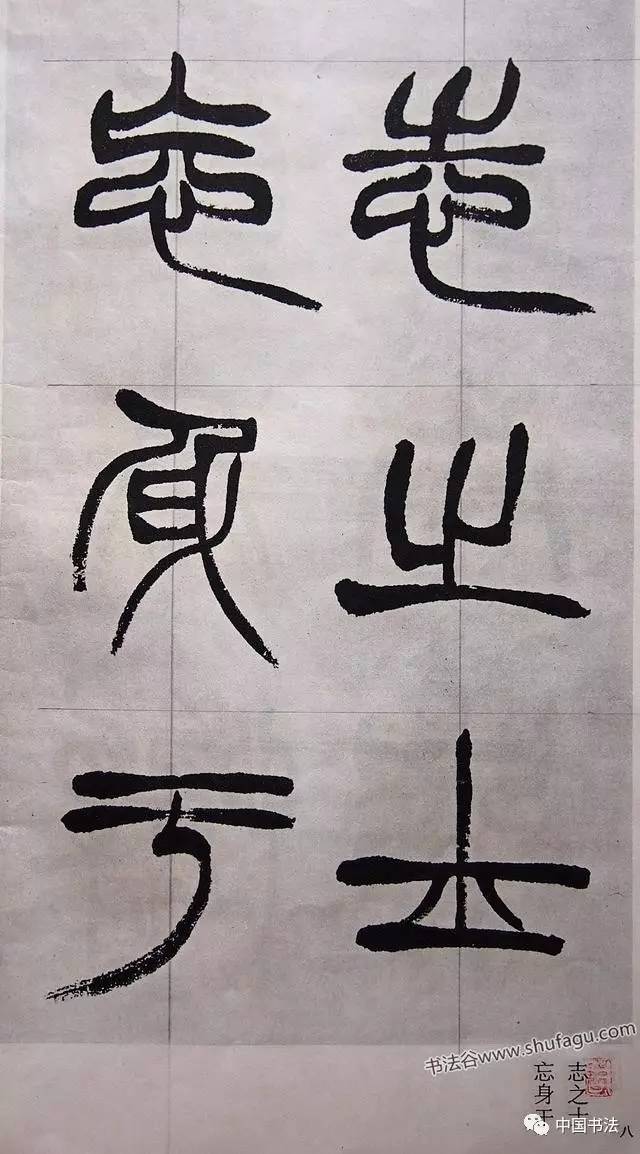 志之士
忘身于
书法谷www.shufagu.com
志之士
忘身于
中国书法
八